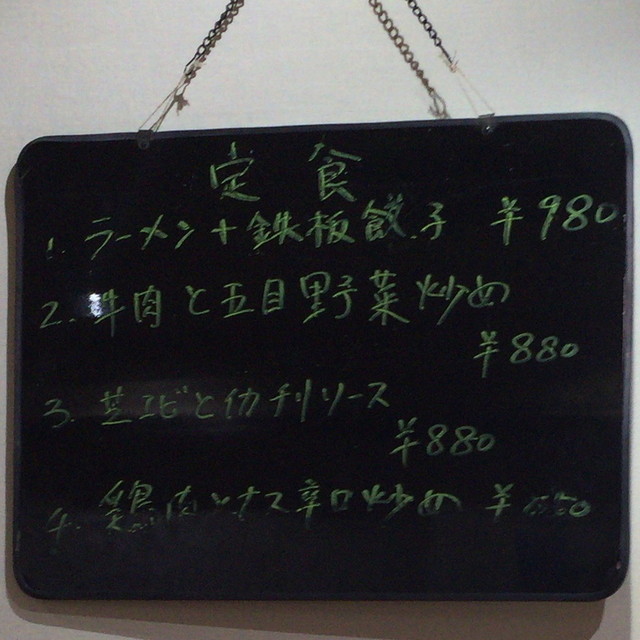 定食
1. ラーメン+鉄板餃子 ¥980
2. 牛肉と五目野菜炒め
¥880
3. 芝エビとイカチリソース
¥880
4. 鶏肉とナス辛口炒め ¥